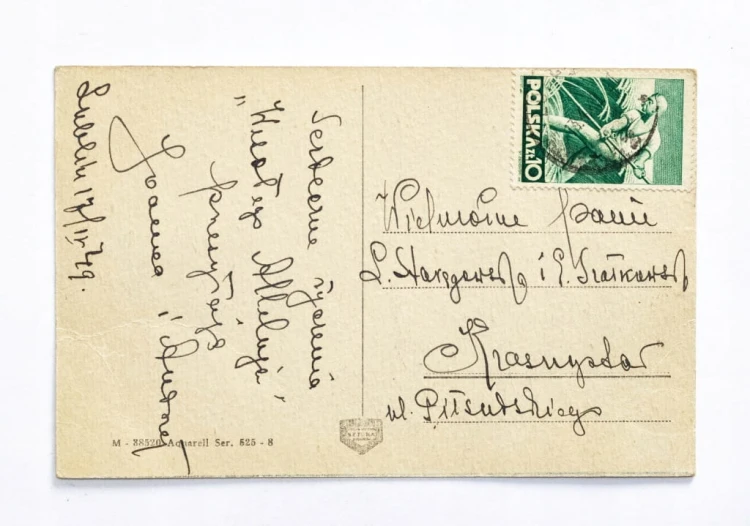 Serdeczne życzenia
"Wesołego Alleluja"
przesyłają
Joanna i
Lublin 17/IV 49.
POLSKA ZŁ 10
Wielmożne Panie
L. i E.
Krasnystaw
ul. Piłsudskiego
M - 38520 Aquarell Ser. 625 - 8